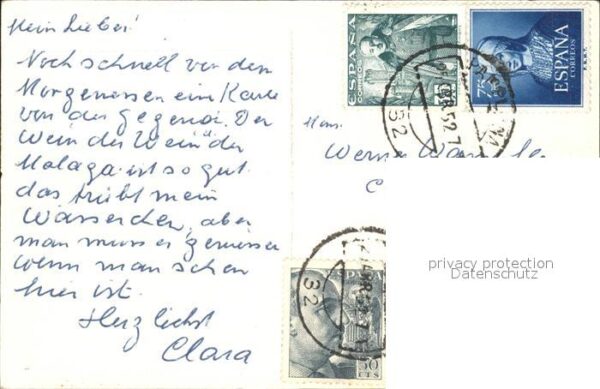 Mein Lieber!
Noch schnell vor dem
Morgenessen ein Karte
von der Gegend. Der
Wein der Wein der
Malaga ist so gut
das trübt mein
Wässerchen, aber
man muss es geniessen
wenn man schon
hier ist.
Herzlichst
Clara
ESPAÑA
CORREOS
ESPAÑA
CORREOS
75
F.N.M.T.
32
52.7
Werner
privacy protection
Datenschutz
ESPAÑA
32
50
CTS